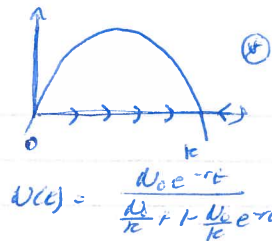 0
k
N(t) = \frac{N_0 e^{-rt}}{\frac{N_0}{k} + 1 - \frac{N_0}{k} e^{-r